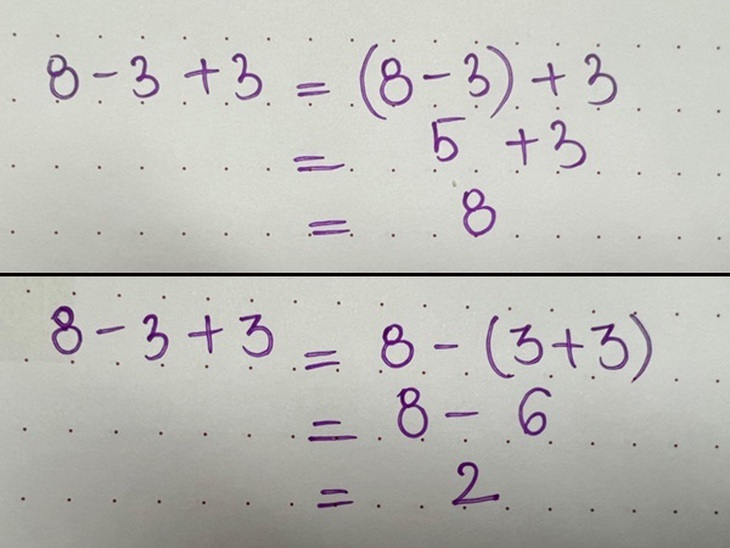 8 - 3 + 3 = (8 - 3) + 3
= 5 + 3
= 8
8 - 3 + 3 = 8 - (3 + 3)
= 8 - 6
= 2